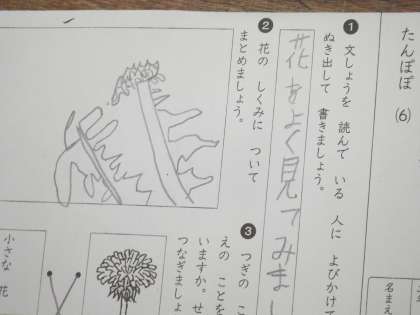 たんぽぽ ⑹
❶ 文しょうを 読んで いる 人に よびかけて
ぬき出して 書きましょう。
花をよく見てみまし
❷ 花の しくみに ついて
まとめましょう。
❸ つぎの こ
えの ことを
いますか。せ
つなぎましょ
小さな 花
名まえ